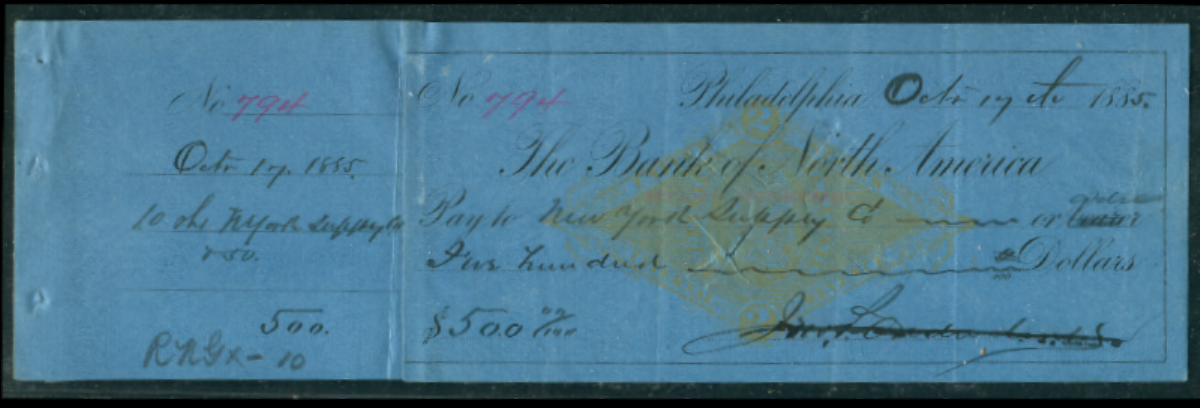 No 794
Octr 17. 1885.
10 shs N York Supply Co
@ 50.
500.
RNGx - 10
No 794 Philadelphia Octr 17th 1885.
The Bank of North America
Pay to New York Supply Co or order
Five hundred 00/100 Dollars
$500 00/100
2
2